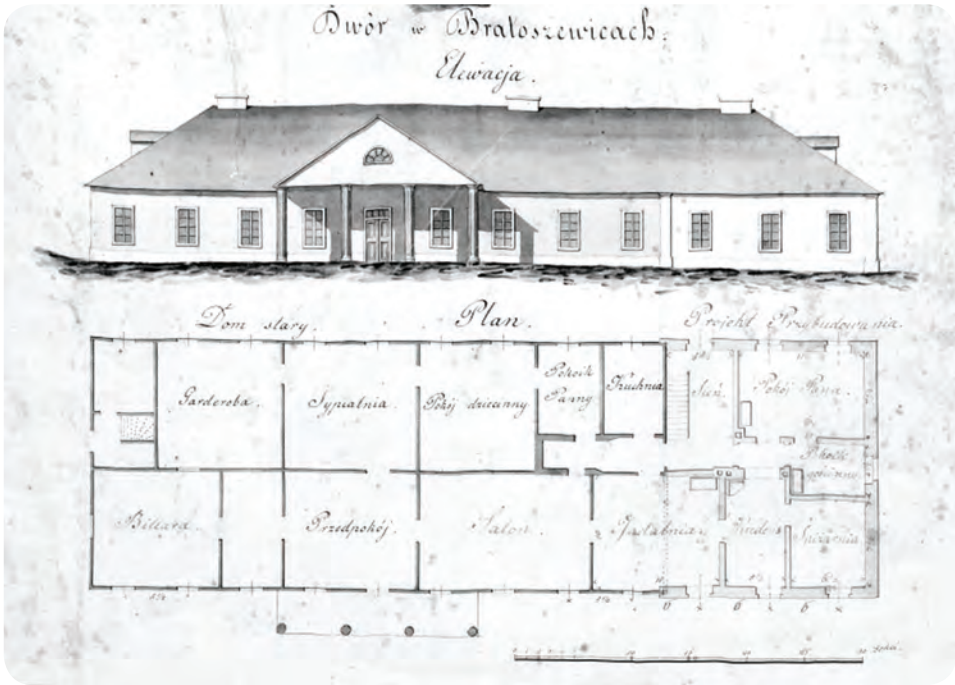 Dwór w Bratoszewicach.
Elewacja.
Dom stary.
Plan.
Projekt Przybudowania.
Garderoba.
Sypialnia.
Pokój dziecinny
Pokoik
Panny
Kuchnia
Sień.
Pokój Pana.
Pokoik
gościnny
Billard.
Przedpokój.
Salon.
Jadalnia.
Kredens
Spiżarnia